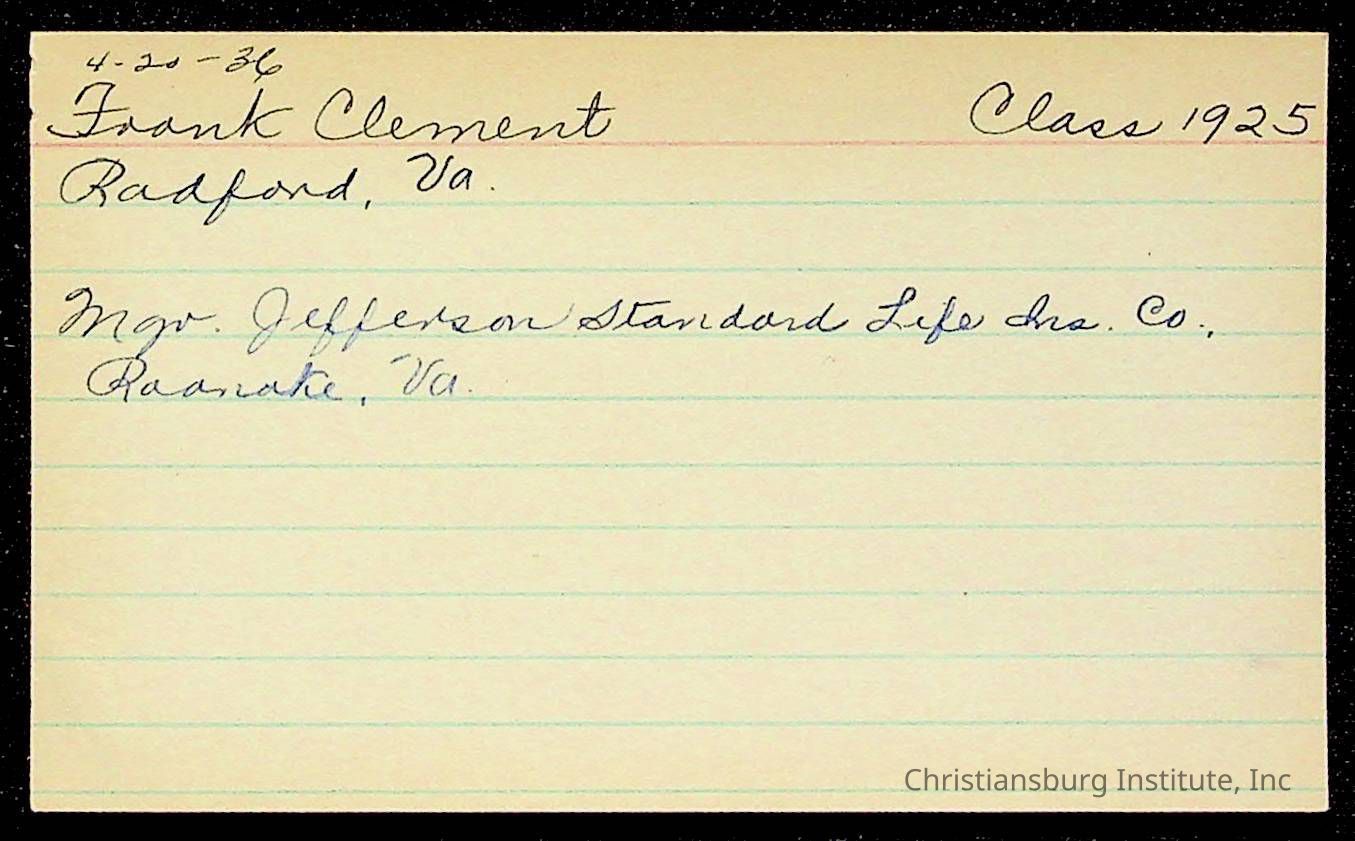 4-20-36
Frank Clement Class 1925
Radford, Va.
Mgr. Jefferson Standard Life Ins. Co.,
Roanoke, Va.
Christiansburg Institute, Inc